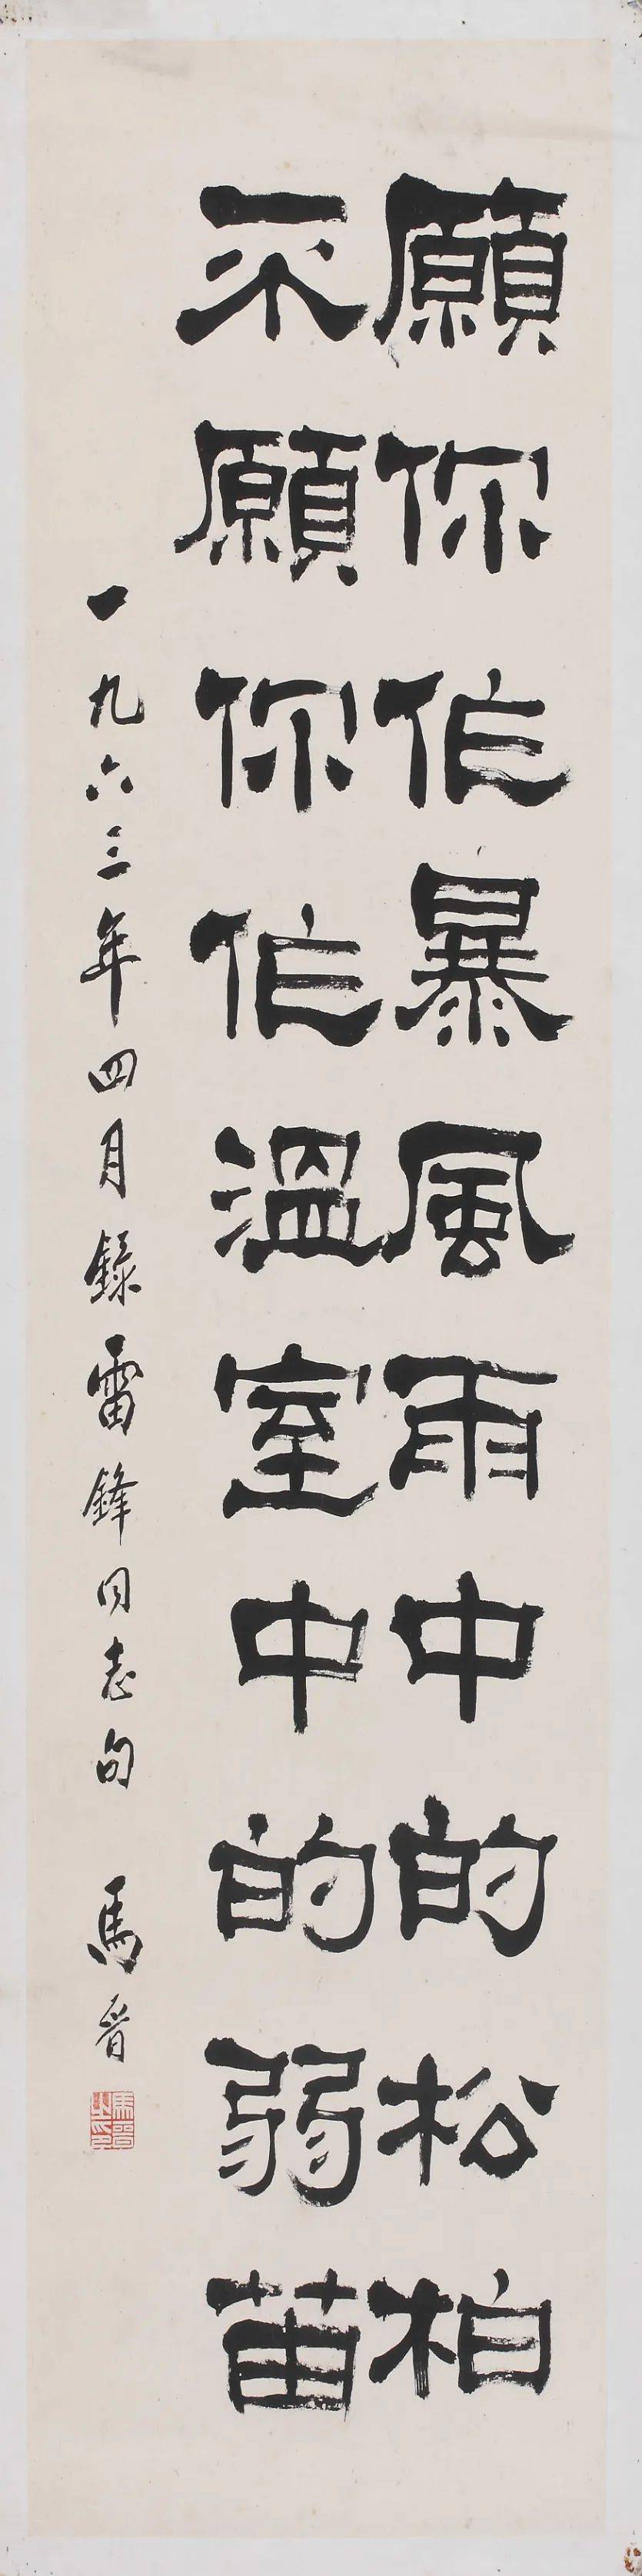 願你作暴風雨中的松柏
不願你作溫室中的弱苗
一九六三年四月錄雷鋒同志句 馬晉
馬晉之印